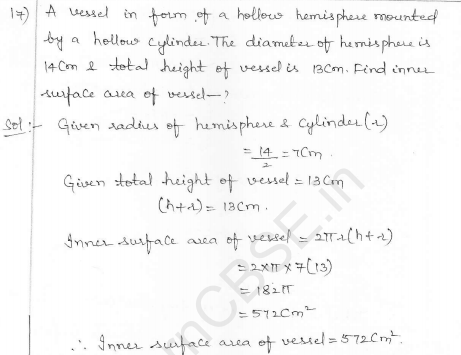 17) A vessel in form of a hollow hemisphere mounted
by a hollow cylinder. The diameter of hemisphere is
14Cm & total height of vessel is 13Cm. Find inner
surface area of vessel—?
Sol:- Given radius of hemisphere & cylinder (r)
= 14/2 = 7Cm
Given total height of vessel = 13Cm
(h+r) = 13Cm.
Inner surface area of vessel = 2πr(h+r)
= 2×π×7(13)
= 182π
= 572Cm²
∴ Inner surface area of vessel = 572Cm².
nCBSE.in